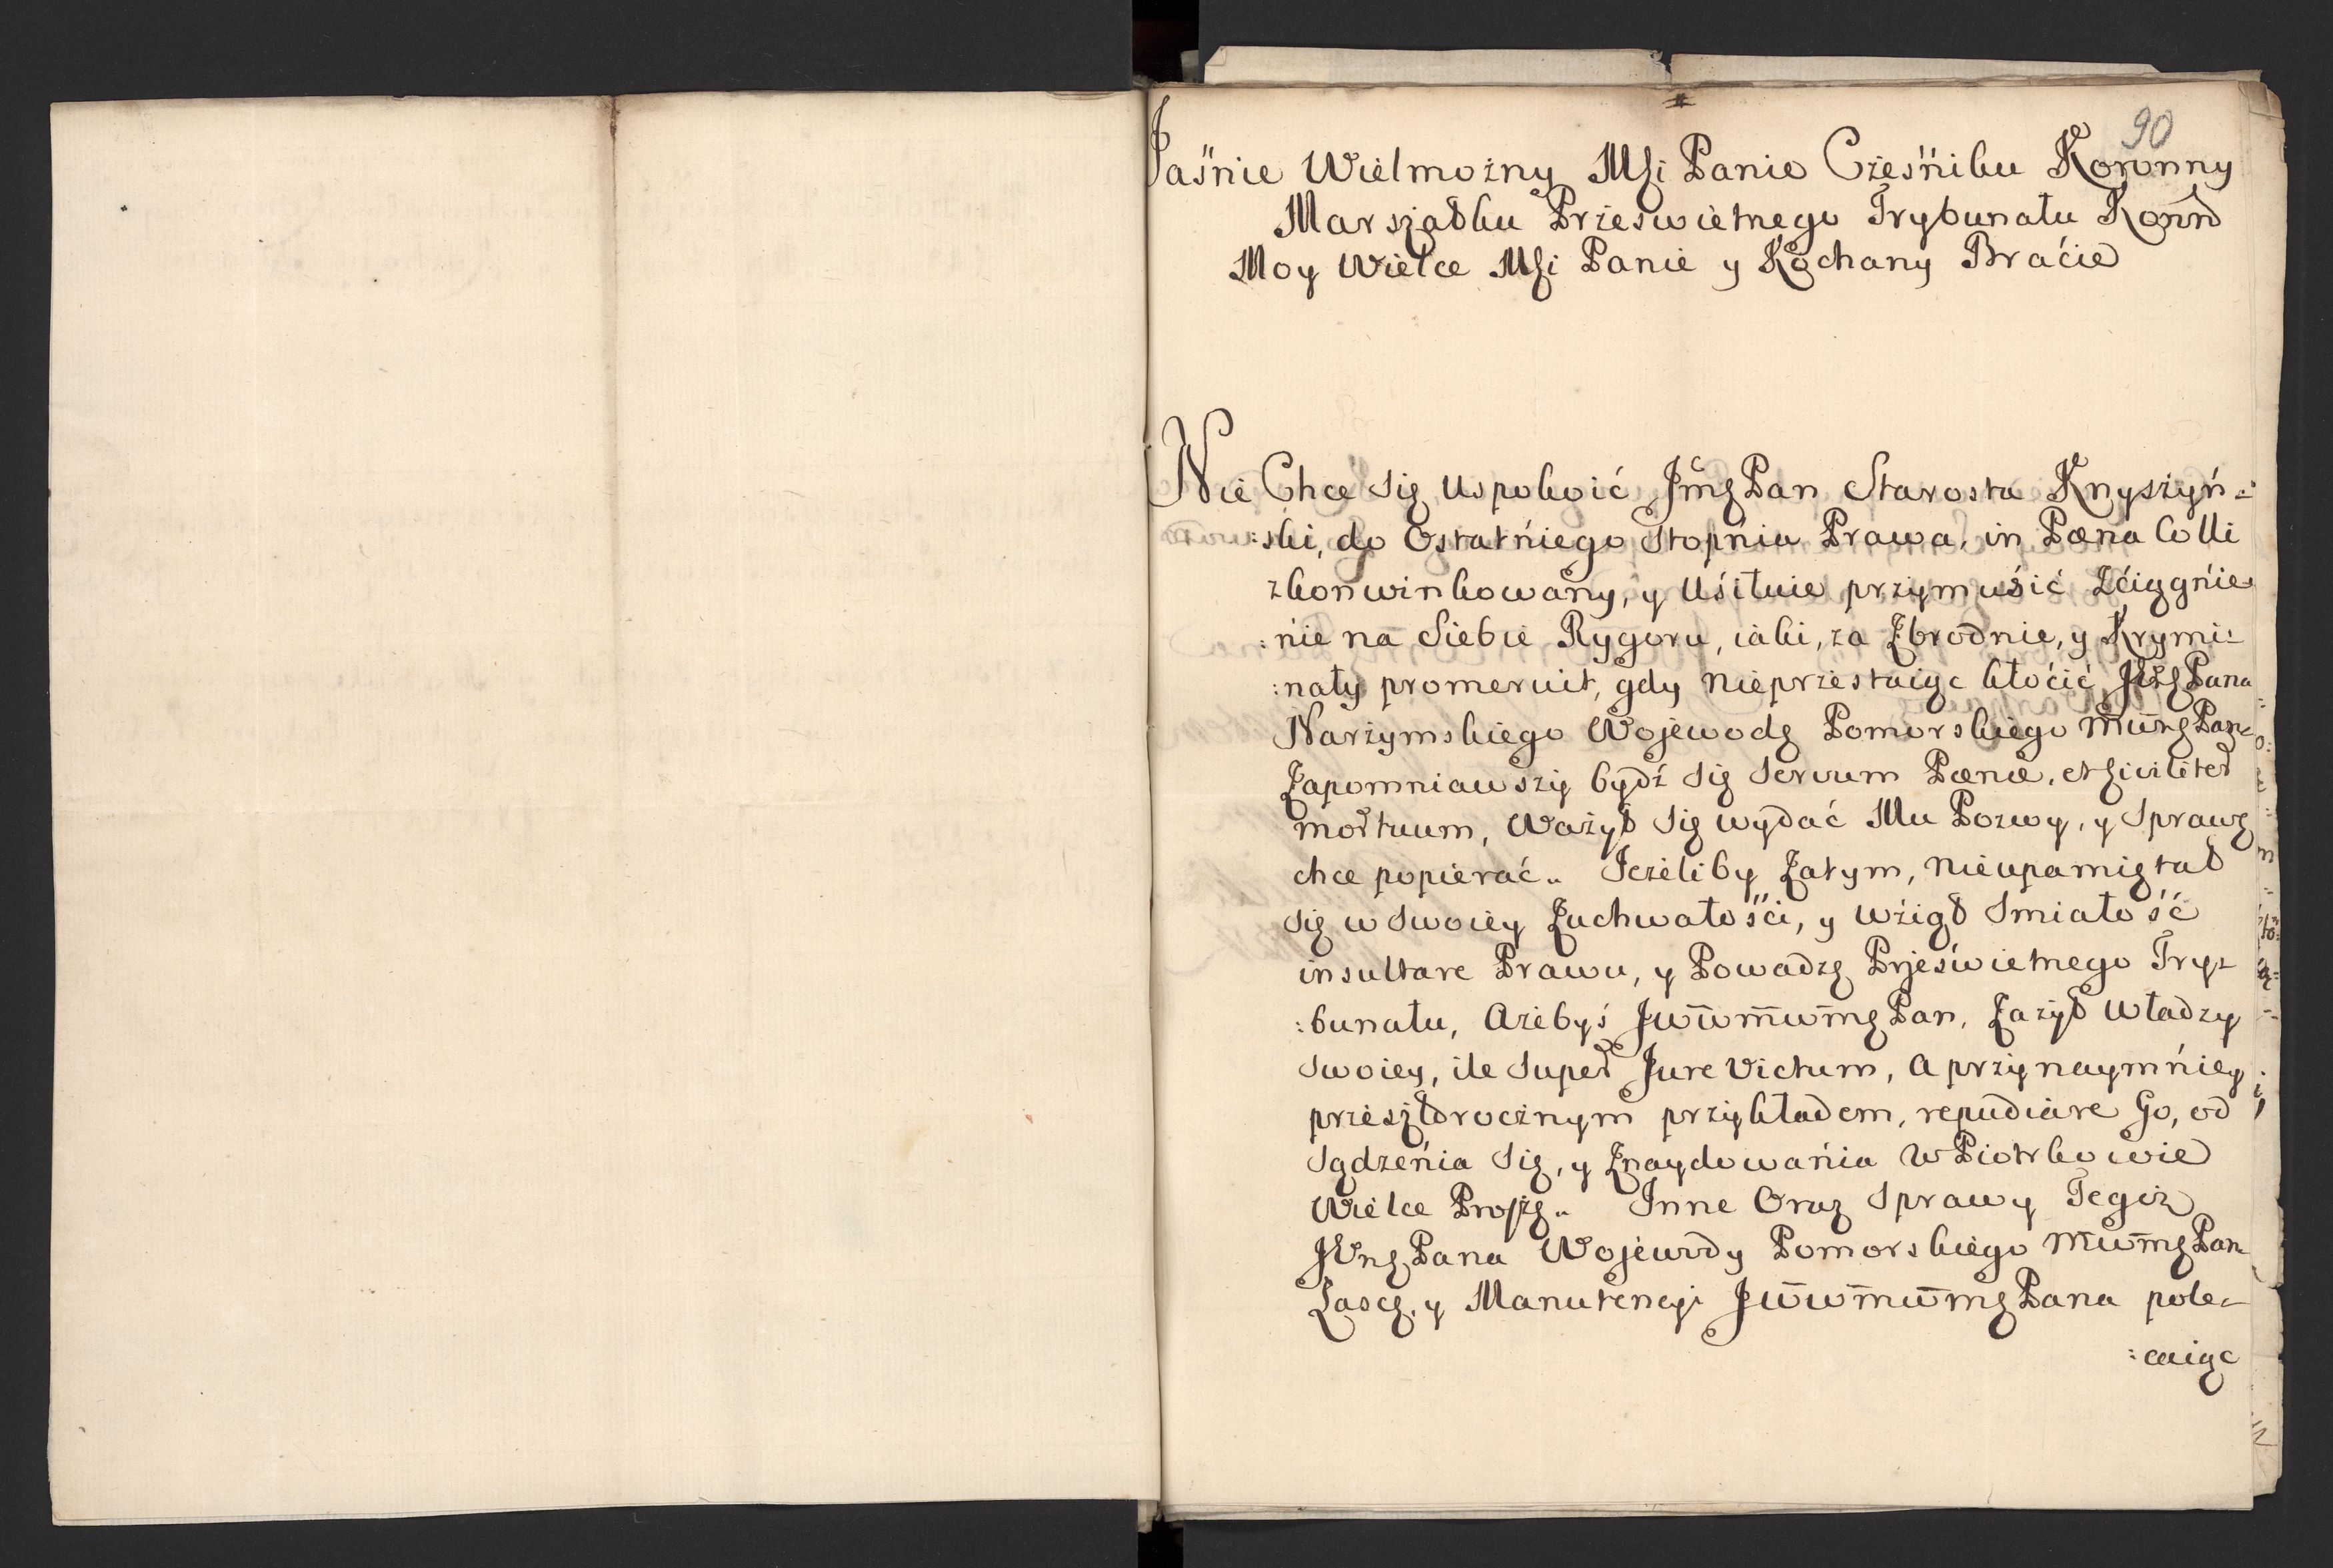 90
Jaśnie Wielmożny Mſci Panie Cześniku Koronny
Marszałku Prześwietnego Trybunału Koronn
Moy Wielce Mſci Panie y Kochany Braćie
Nie Chce Się Uspokoić Jmę Pan Starosta Knyszyń=
:ski, do Ostatńiego Stopńia Prawa, in Pæna Colli
zkonwinkowany, y Uśiłuie przymuśić Zćiągńie=
:nie na Siebie Rygoru, iaki, za Zbrodnie, y Krymi=
:nały promeruit, gdy nieprzestaiąc kłoćić Pana
Narzymskiego Wojewodę Pomorskiego Pan=
Zapomniawszy bydź Się Servum Pænæ, et civiliter
mortuum, Ważył Się wydać Mu Pozwy, y Sprawę
chce popierać„ Jeżeliby Zatym, nieupamiętał
Się w Swoiey Zuchwałośći, y wźiął Smiałość
insultare Prawu, y Powadze Prześwietnego Try=
:bunału, Ażebyś JWWMWMę Pan, Zażył Władzy
Swoiey, ile Super Jure Victum, A przynaymńiey
przeszłorocznym przykładem, repudiare Go, od
Sądzeńia Się, y Znaydowańia w Piotrkowie
Wielce Proszę„ Inne Oraz Sprawy Tegoż
Pana Wojewody Pomorskiego MWMę Pan=
Łasce, y Manutencyi JWWMWMę Pana pole=
:caiąc